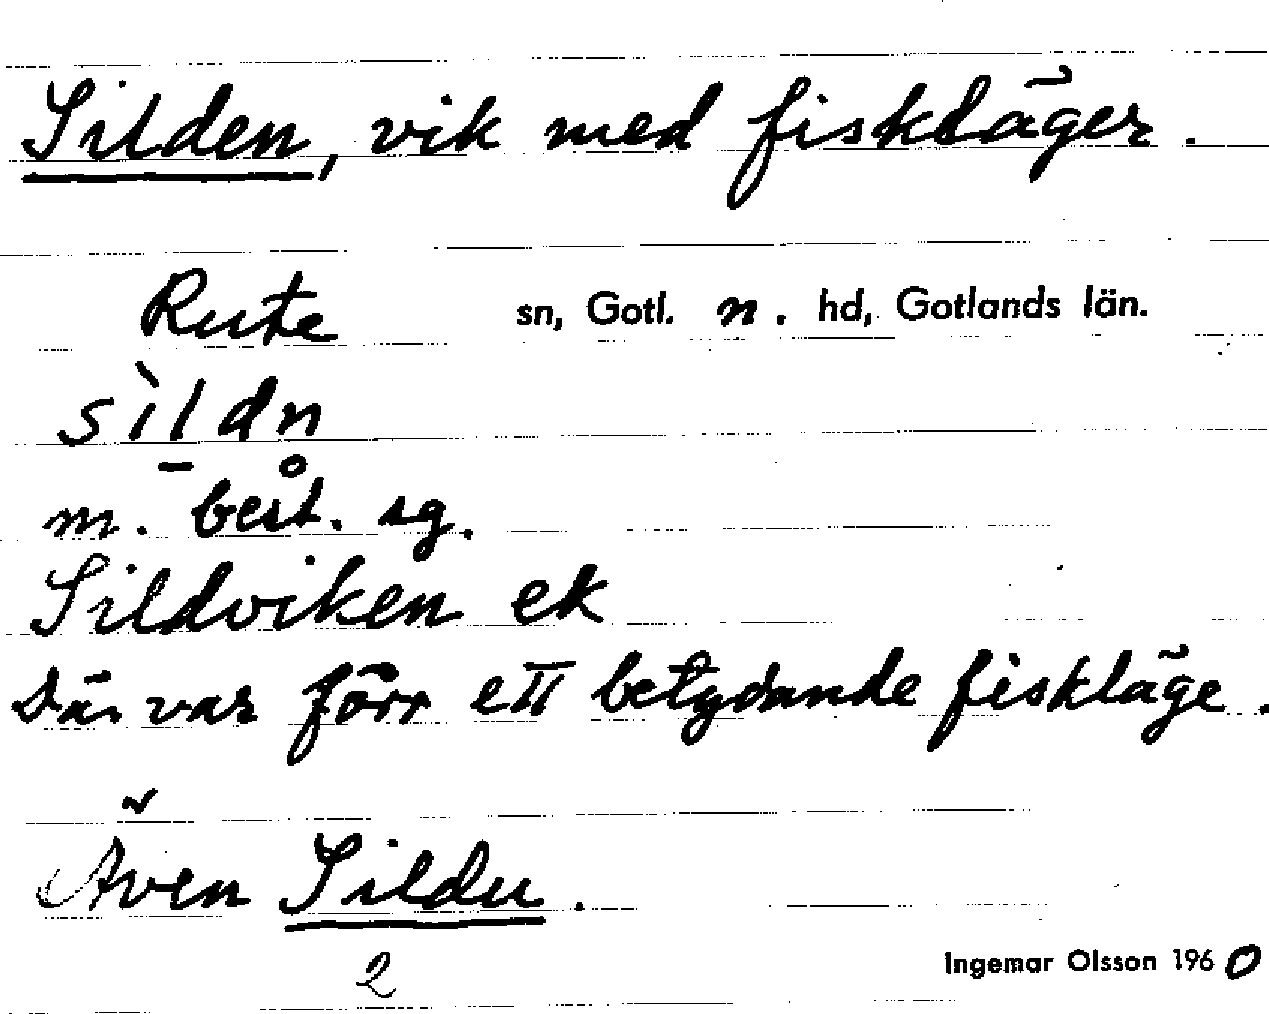 Silden, vik med fiskläger.
Rute sn, Gotl. n. hd, Gotlands län.
sı̀l̠dn̥
m. best. sg.
Sildviken ek
Där var förr ett betydande fiskläge.
Även Sildu.
2
Ingemar Olsson 1960